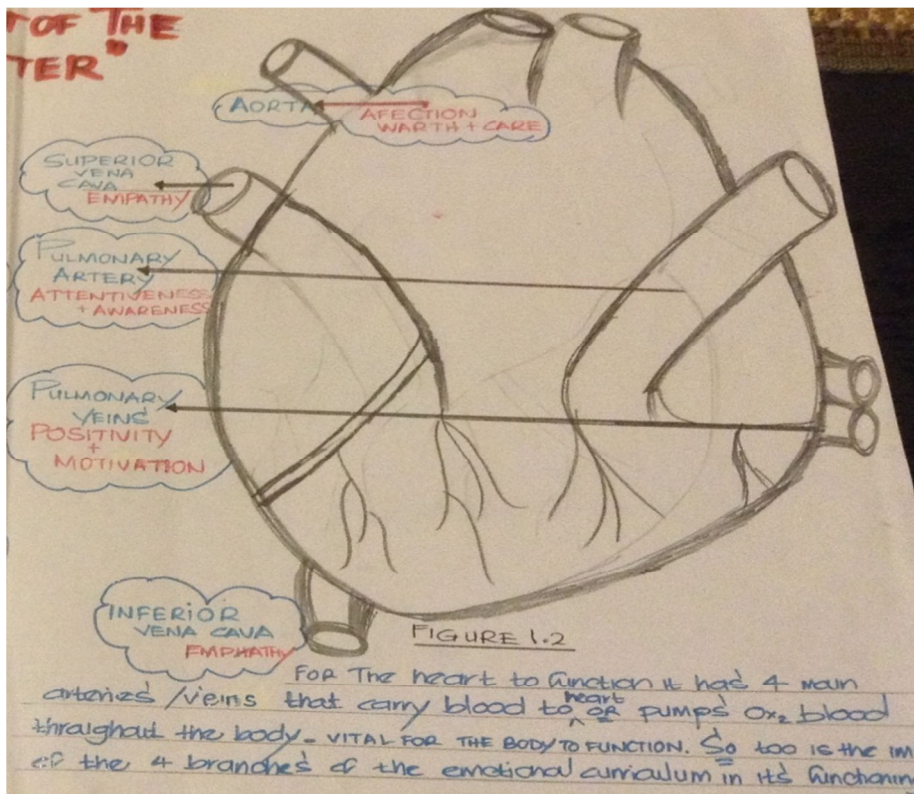 T OF THE
TER"
AORTA
AFECTION
WARTH + CARE
SUPERIOR
VENA
CAVA
EMPATHY
PULMONARY
ARTERY
ATTENTIVENESS
+ AWARENESS
PULMONARY
VEINS
POSITIVITY
+
MOTIVATION
INFERIOR
VENA CAVA
EMPHATHY
FIGURE 1.2
FOR THE heart to function it has 4 main
arteries/veins that carry blood to heart or pumps Ox₂ blood
throughout the body - VITAL FOR THE BODY TO FUNCTION. So too is the im
of the 4 branches of the emotional curriculum in its functionin